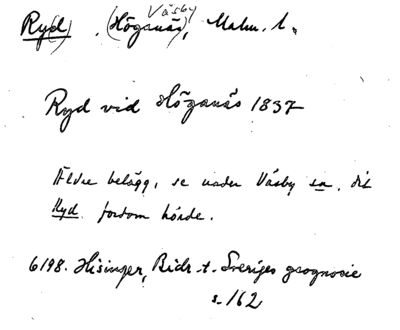 Väsby
Ry(d) . (Höganäs), Malm. l.
Ryd vid Höganäs 1837
Äldre belägg, se under Väsby sn, dit
Ryd fordom hörde.
6198. Hisinger, Bidr. t. Sveriges geognosie
s. 162